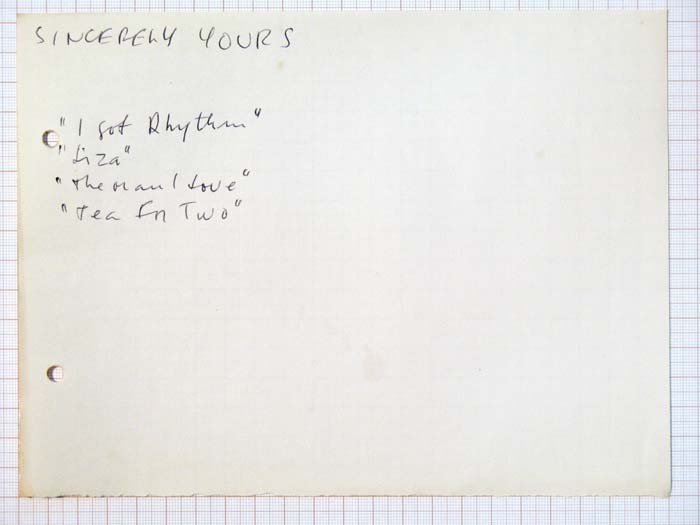 SINCERELY YOURS
"I got Rhythm"
"Liza"
"The man I Love"
"Tea For Two"